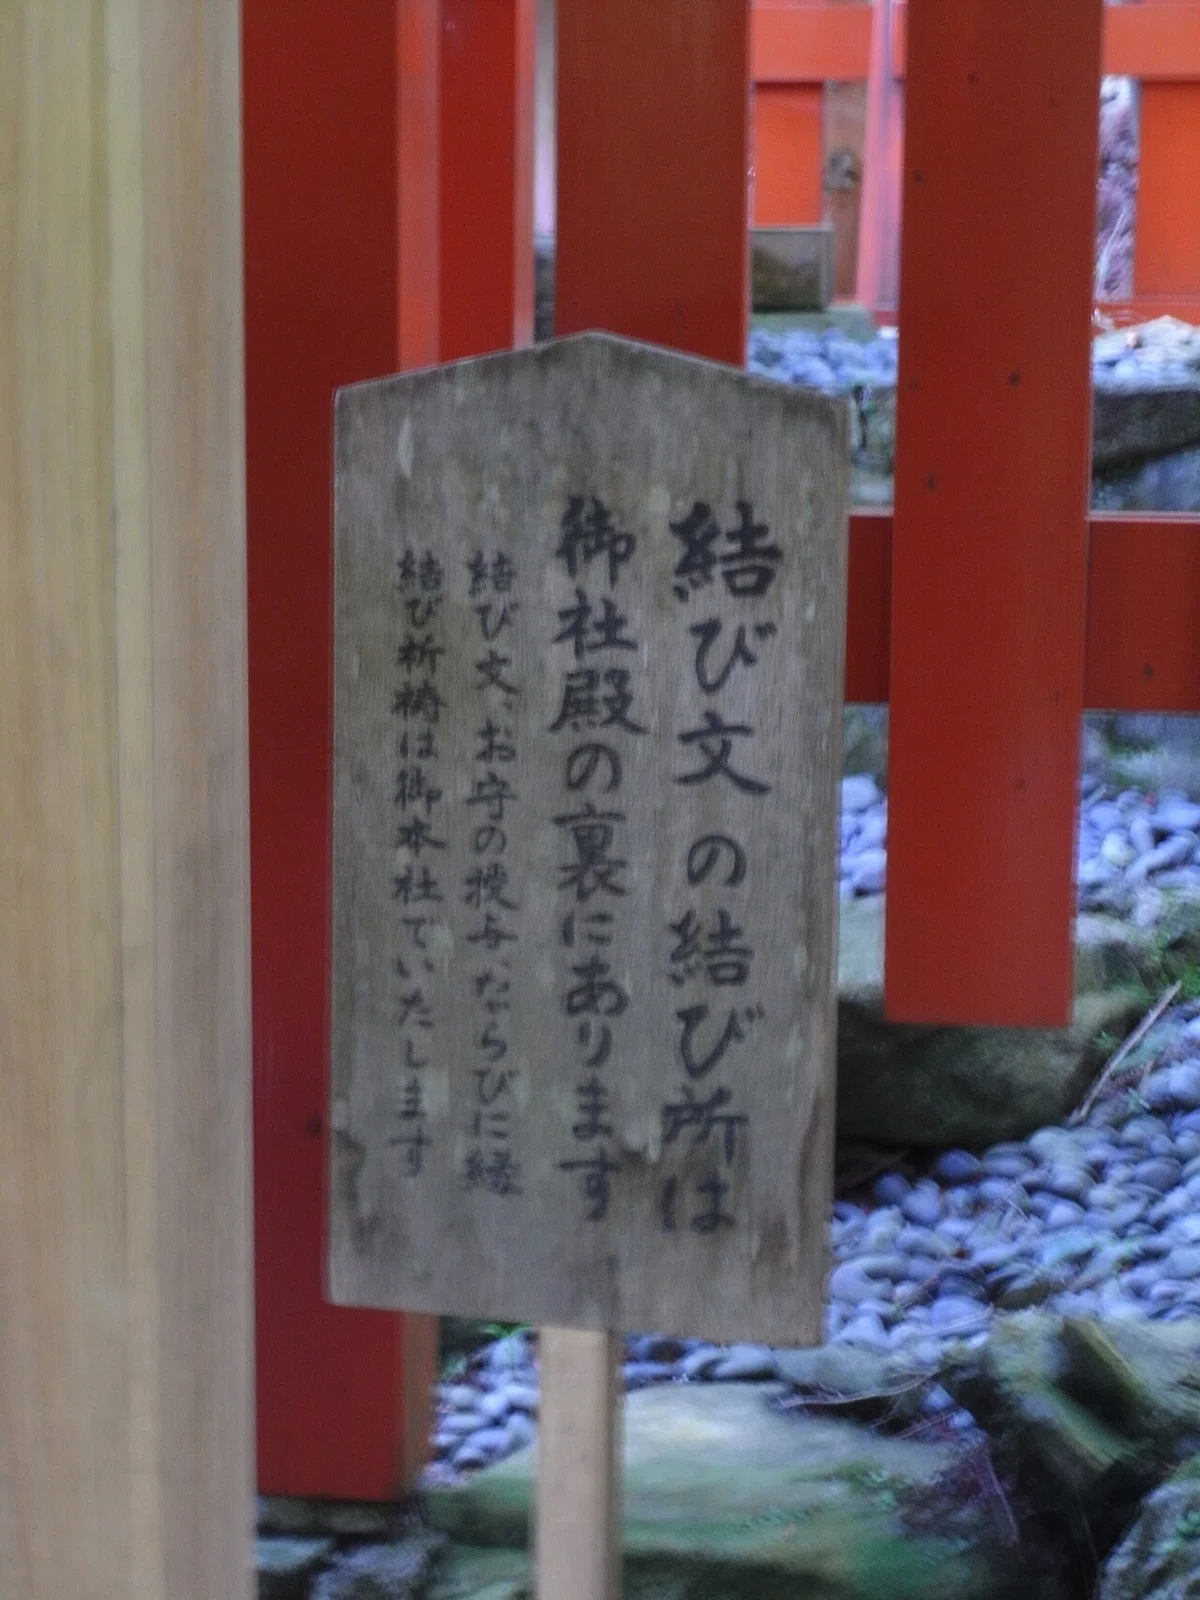 結び文の結び所は
御社殿の裏にあります
結び文、お守の授与、ならびに縁
結び祈祷は御本社でいたします